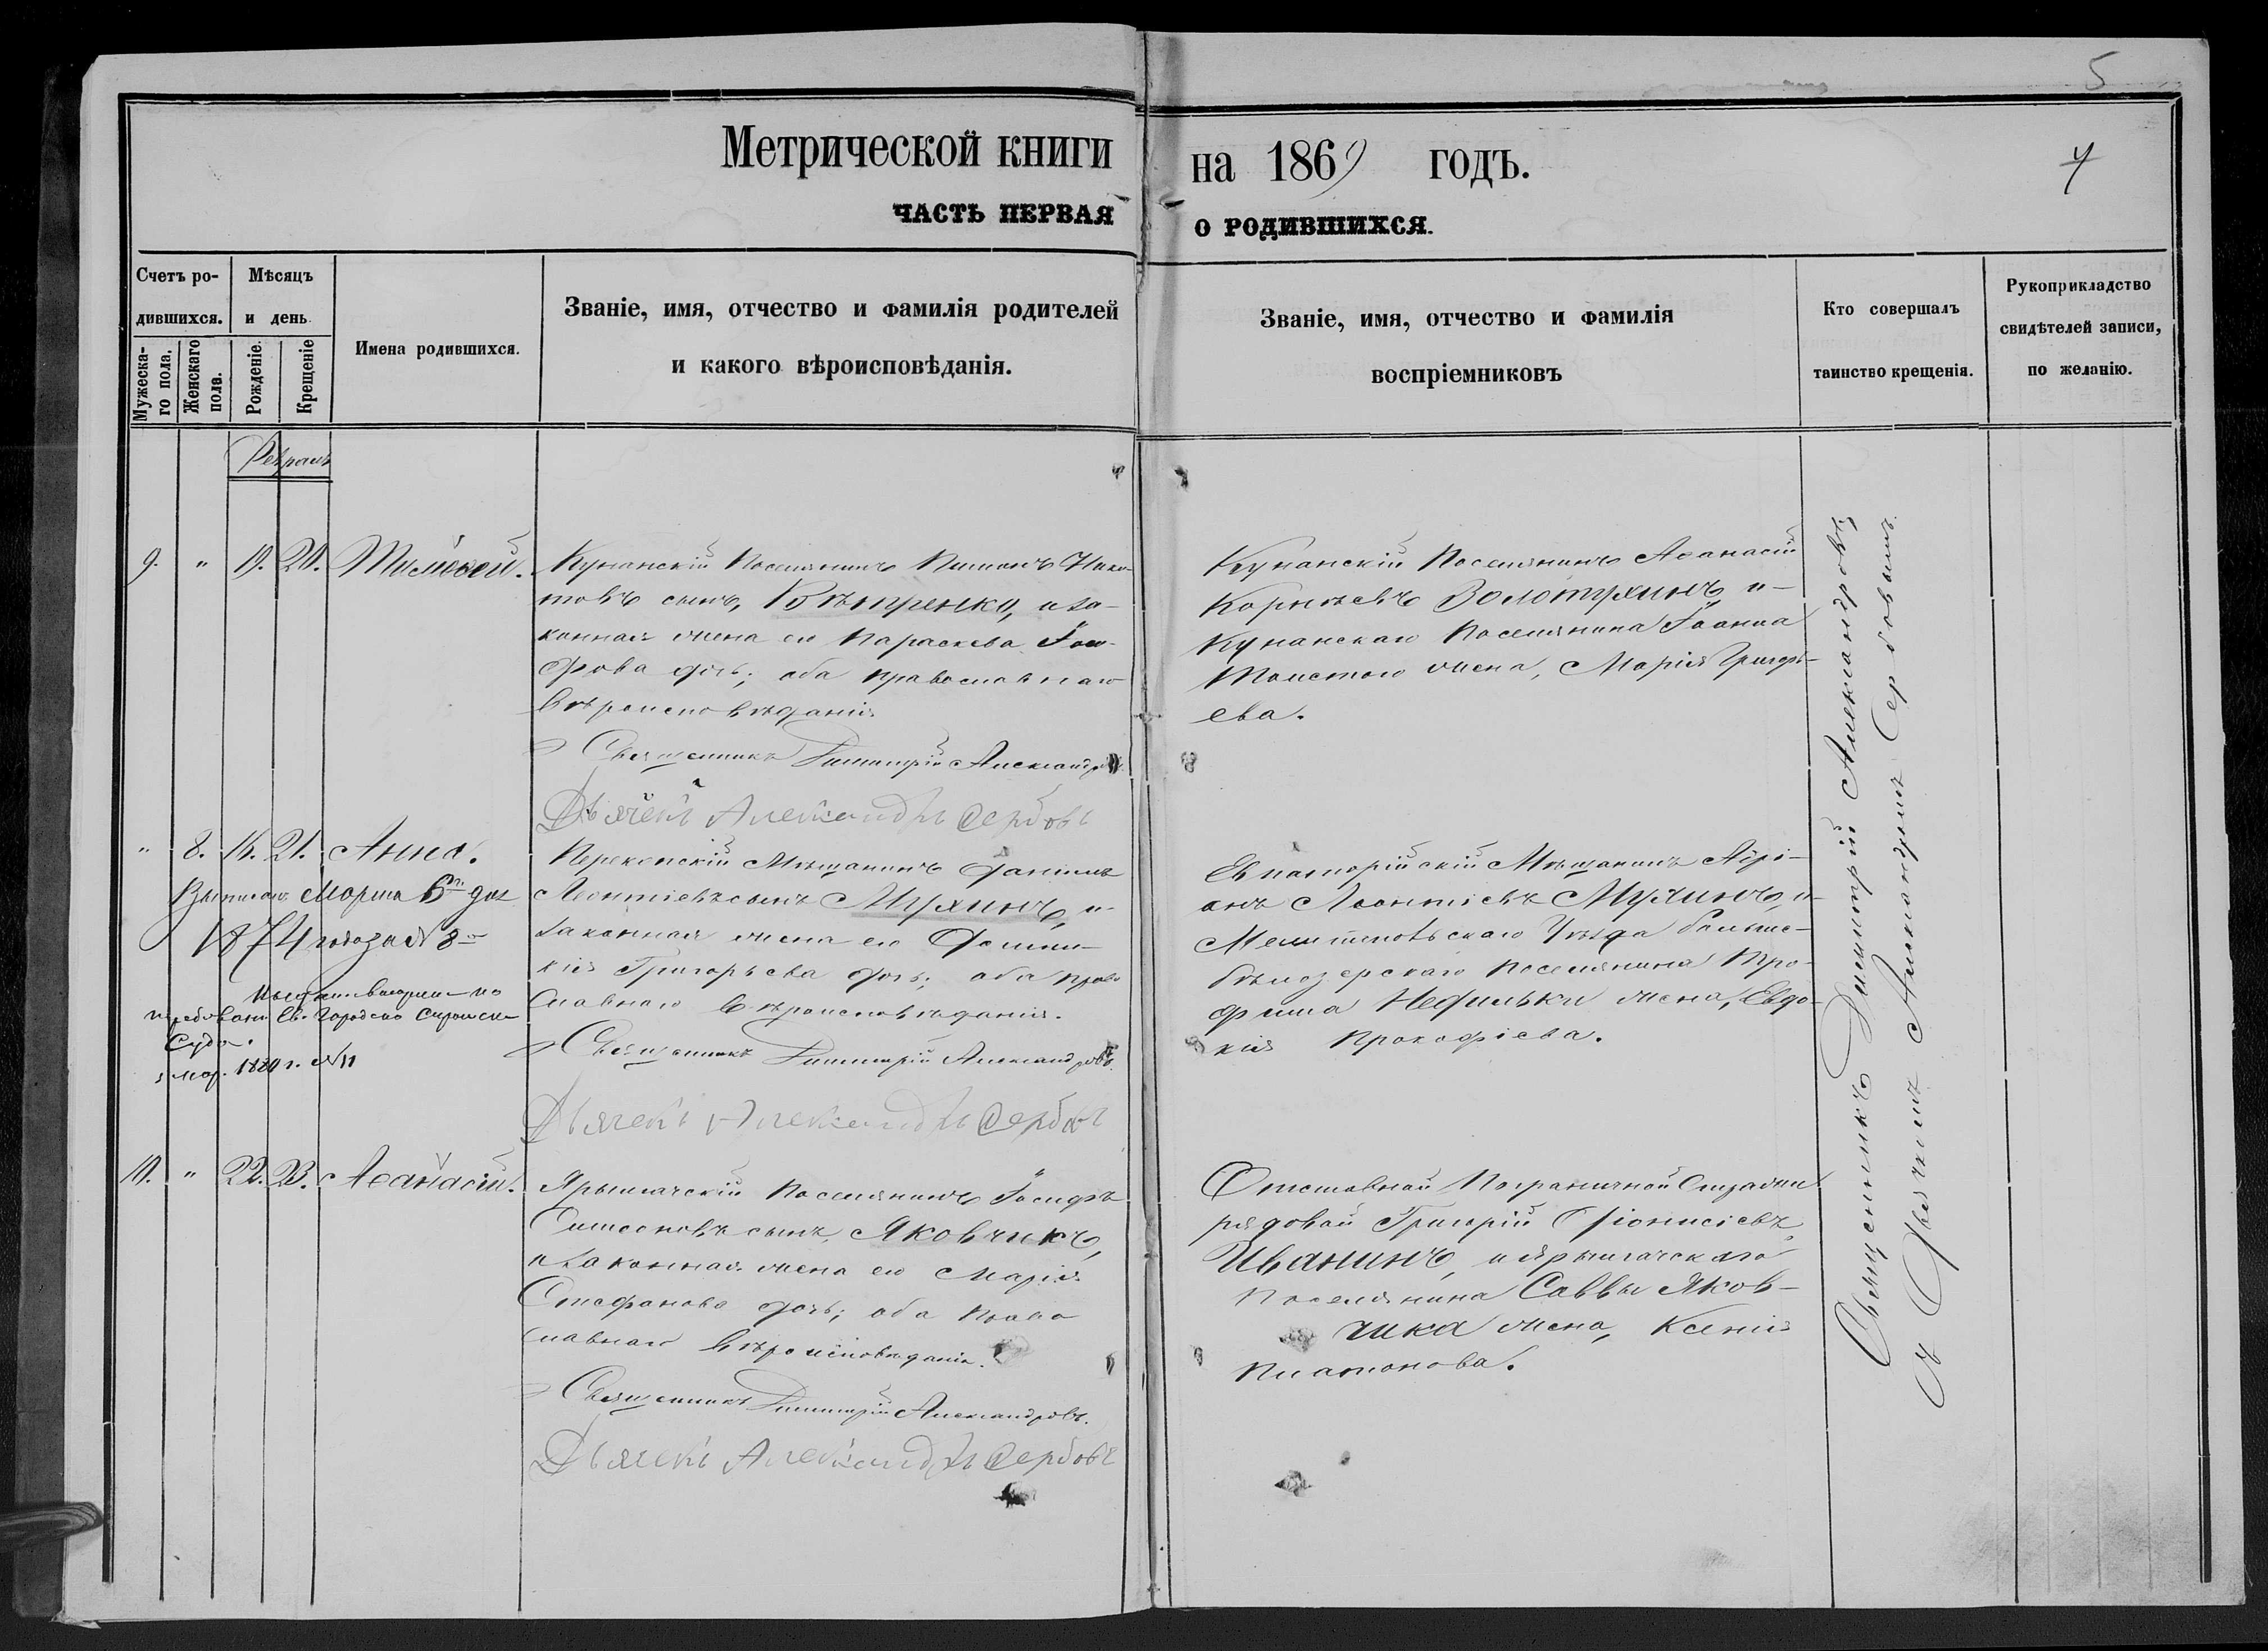 5
Метрической книги на 1869 годъ.
4
ЧАСТЬ ПЕРВАЯ О РОДИВШИХСЯ.
Счетъ ро-
дившихся.
Мужеска-
го пола.
Женскаго
пола.
Мѣсяцъ
и день
Рожденіе.
Крещеніе
Имена родившихся.
Званіе, имя, отчество и фамилія родителей
и какого вѣроисповѣданія.
Званіе, имя, отчество и фамилія
воспріемниковъ
Кто совершалъ
таинство крещенія.
Рукоприкладство
свидѣтелей записи,
по желанію.
Февраль
9. " 19. 20. Тимоѳей.
Кунанскій Поселянинъ Пименъ Ники-
товъ сынъ, Вѣтренко, и за-
конная жена его Параскева
дочь; оба православнаго
вѣроисповѣданія
Священникъ Димитрій Александровъ
Дьячекъ Александръ Сербовъ
Кунанскій Поселянинъ Аѳанасій
Корнѣевъ Золотухинъ и
Кунанскаго Поселянина Іоанна
Толстого жена, Марія Григорь-
ева.
" 8. 16. 21. Анна.
Марта 6го дня
1874 года за № 8
Ев. Городско Сиротск
Суда
мар. 1880 г. № 11
Перекопскій Мѣщанинъ Даніилъ
Леонтіевъ сынъ Мухинъ, и
законная жена его Домни-
кія Григорьева дочь; оба право
славнаго вѣроисповѣданія.
Священникъ Димитрій Александровъ.
Дьячекъ Александръ Сербовъ
Евпаторійскій Мѣщанинъ Адрі-
анъ Леонтіевъ Мухинъ, и
Мелитопольскаго Уѣзда больше-
бѣлозерскаго поселянина Тро-
фима Нефильки жена, Евдо-
кія Прокофіева.
10. " 22. 23. Аѳанасій.
Ярылгачскій поселянинъ Іосифъ
Симеоновъ сынъ, Яковчикъ,
и законная жена его Марія
Стефанова дочь; оба право
славнаго вѣроисповѣданія.
Священникъ Димитрій Александровъ.
Дьячекъ Александръ Сербовъ
Отставной Пограничной Стражи
рядовой Григорій Діонисіевъ
Иванинъ, и ярылгачскаго
поселянина Саввы Яков-
чика жена, Ксенія
Платонова.
Священникъ Димитрій Александровъ,
съ Дьячкомъ Александромъ Сербовымъ.